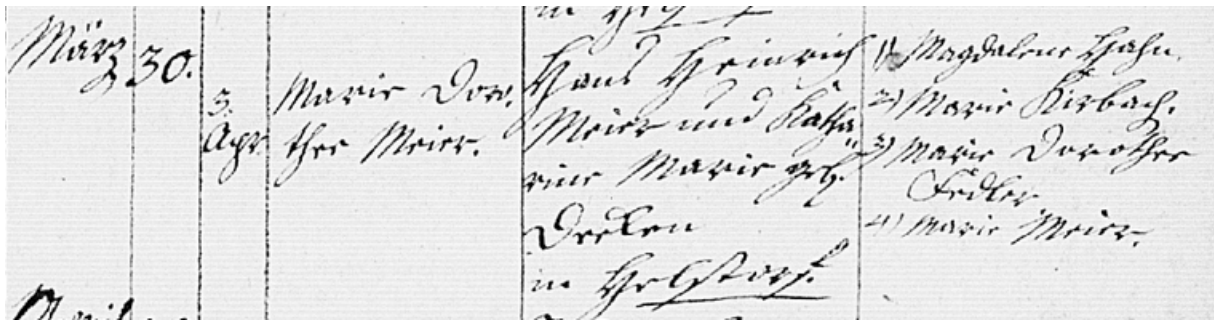 März 30.
3.
Apr.
Marie Doro-
thee Meier.
Hans Heinrich
Meier und Katha-
rine Marie geb.
Deeken
in Helstorf.
1) Magdalene Hahn.
2) Marie Kirbach.
3) Marie Dorothee
Fedler
4) Marie Meier.